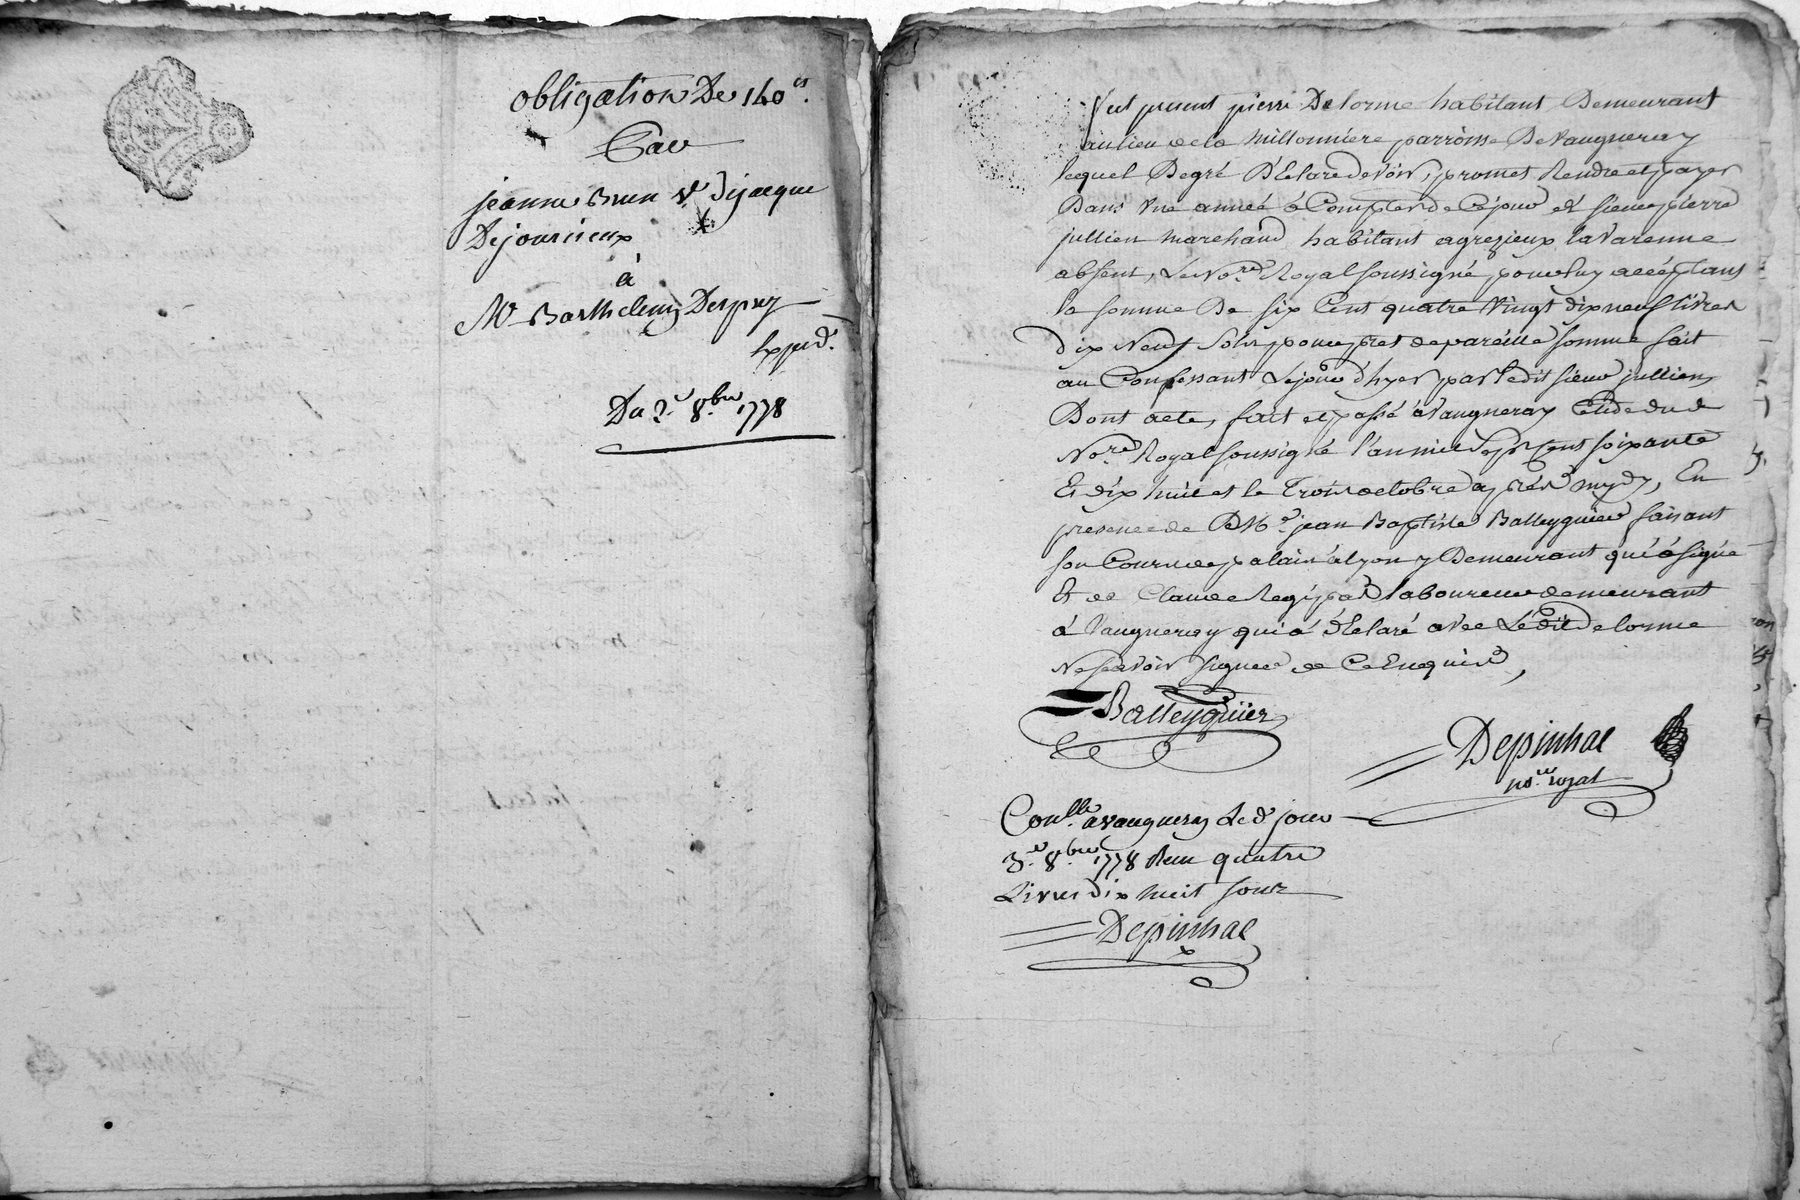 obligation De 140 lt.
Par
jeanne Brun Ve De jacque
Dejoursieux
à
Mr Barthelemy Despry
Exped.
Du 2e 8bre 1778
fut present pierre Delorme habitant Demeurant
au lieu de la Millonniere parroisse De Vaugneray
lequel De gré Déclare devoir, promet Rendre et payer
Dans Une année à Compter de Cejour et sieur pierre
jullien Marchand habitant a grezieux la Varenne
absent, Le Nore Royal soussigné, pour luy acceptant
la somme De six Cent quatre Vingt dix neuf Livres
dix Neuf Sols, pour pret de pareille somme fait
au Confessant Le jour d'hyer par ledit sieur jullien,
Dont acte, fait et passé à Vaugneray Etude du d
Nore Royal soussigné l'an mil sept Cent soixante
Et dix huit et le Trois octobre après mydy, En
presence de Me jean Baptiste Balleyguier faisant
son Cours de palais à Lyon y Demeurant qui à signé
Et de Claude laboureur demeurant
à Vaugneray qui à déclaré avec Ledit delorme
Ne savoir signer de Ce Enquis,
Balleyguier
Depinhac
nore royal
Conlle a vaugneray Le d jour
3e 8bre 1778 Reçu quatre
Livres dix huit sous
Depinhac